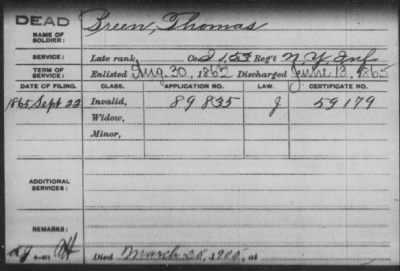 DEAD
NAME OF
SOLDIER:
Breen, Thomas
SERVICE:
Late rank, Co. I 155 Reg't N.Y. Inf
TERM OF
SERVICE:
Enlisted Aug. 30, 1862 Discharged June 13, 1865
DATE OF FILING. CLASS. APPLICATION NO. LAW. CERTIFICATE NO.
1865 Sept 22 Invalid, 89 835 J 59 179
Widow,
Minor,
ADDITIONAL
SERVICES:
REMARKS:
Died March 1905, at